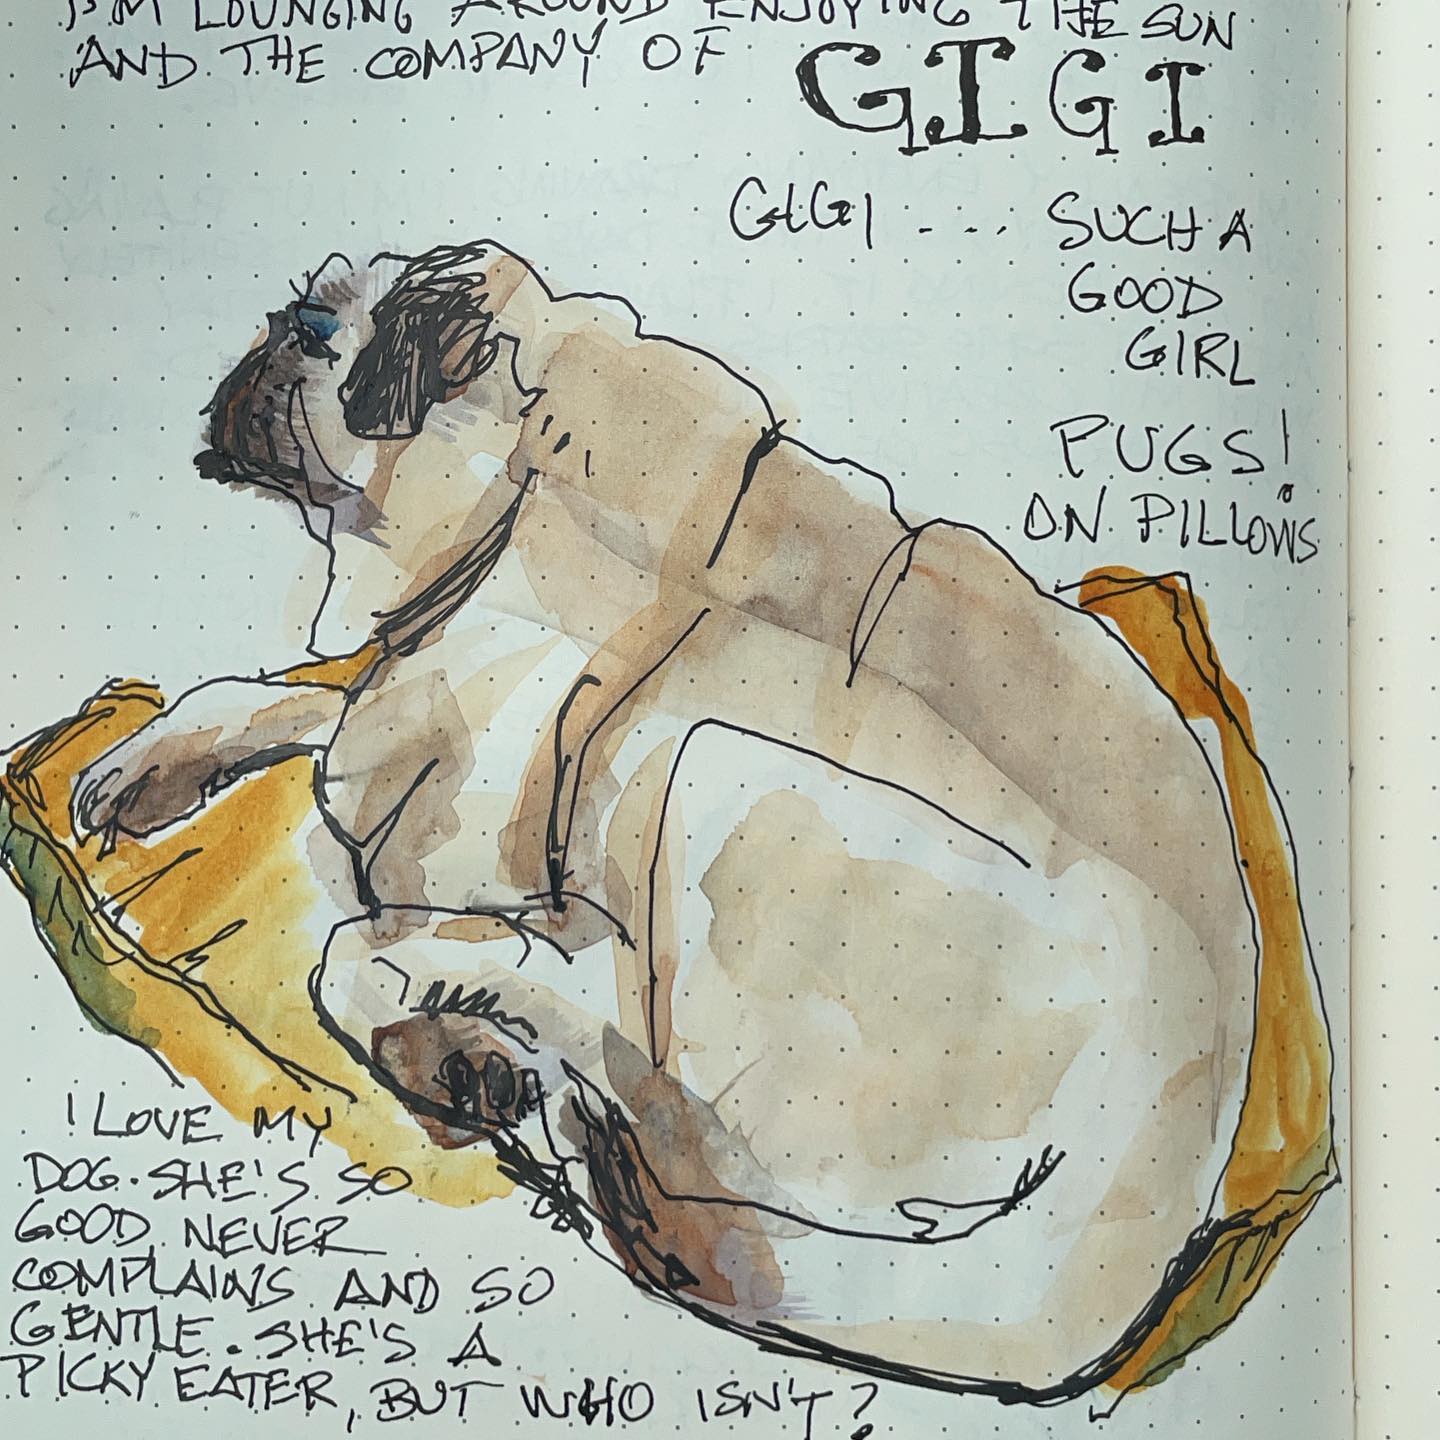 I'M LOUNGING AROUND ENJOYING THE SUN
AND THE COMPANY OF GIGI
GIGI .... SUCH A
GOOD
GIRL
PUGS!
ON PILLOWS
I LOVE MY
DOG. SHE'S SO
GOOD NEVER
COMPLAINS AND SO
GENTLE. SHE'S A
PICKY EATER, BUT WHO ISN'T?